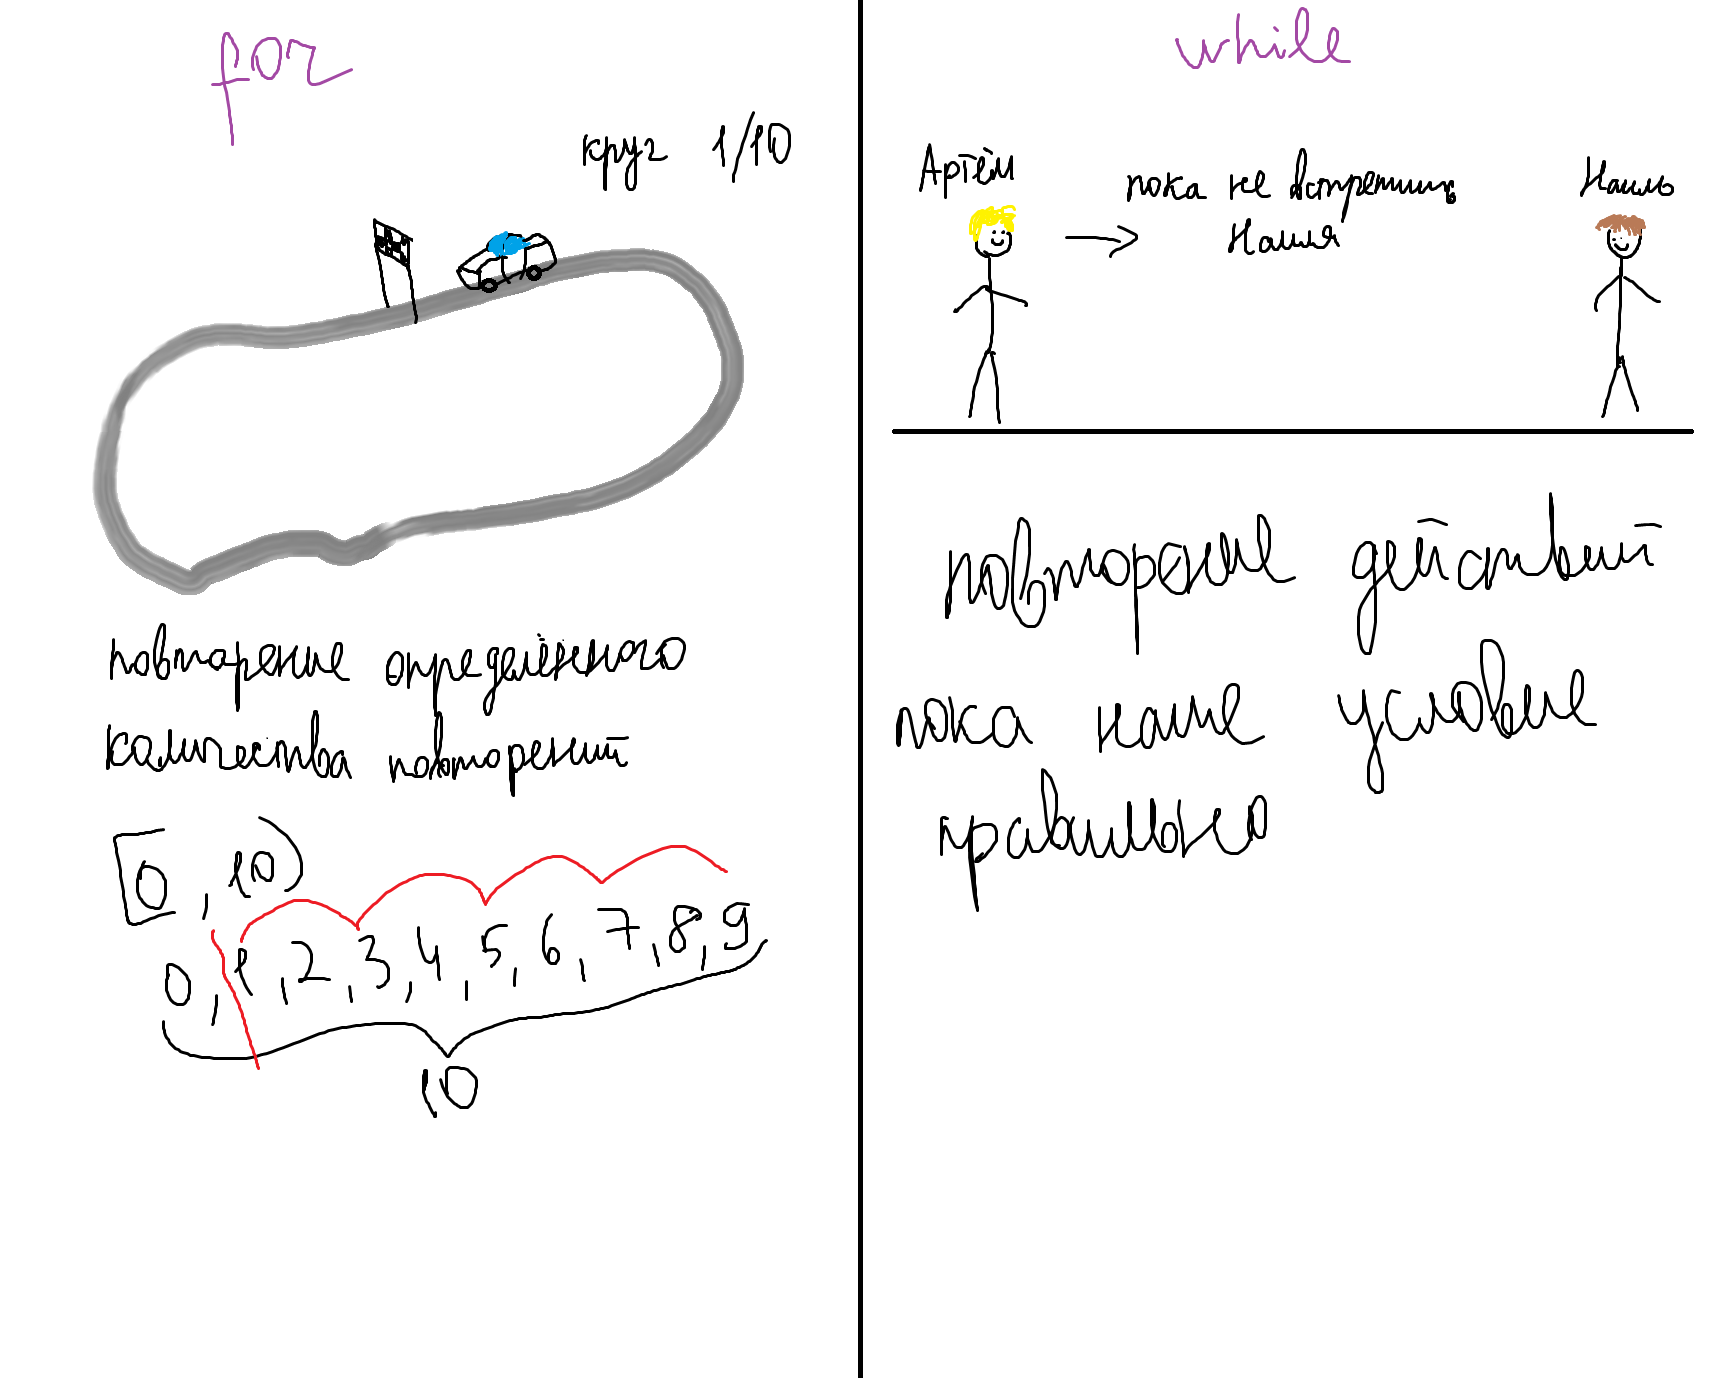 for
круг 1/10
повторение определённого
количества повторений
[0, 10)
0, 1, 2, 3, 4, 5, 6, 7, 8, 9
10
while
Артём
пока не встретишь
Наиля
Наиль
повторение действий
пока наше условие
правильно